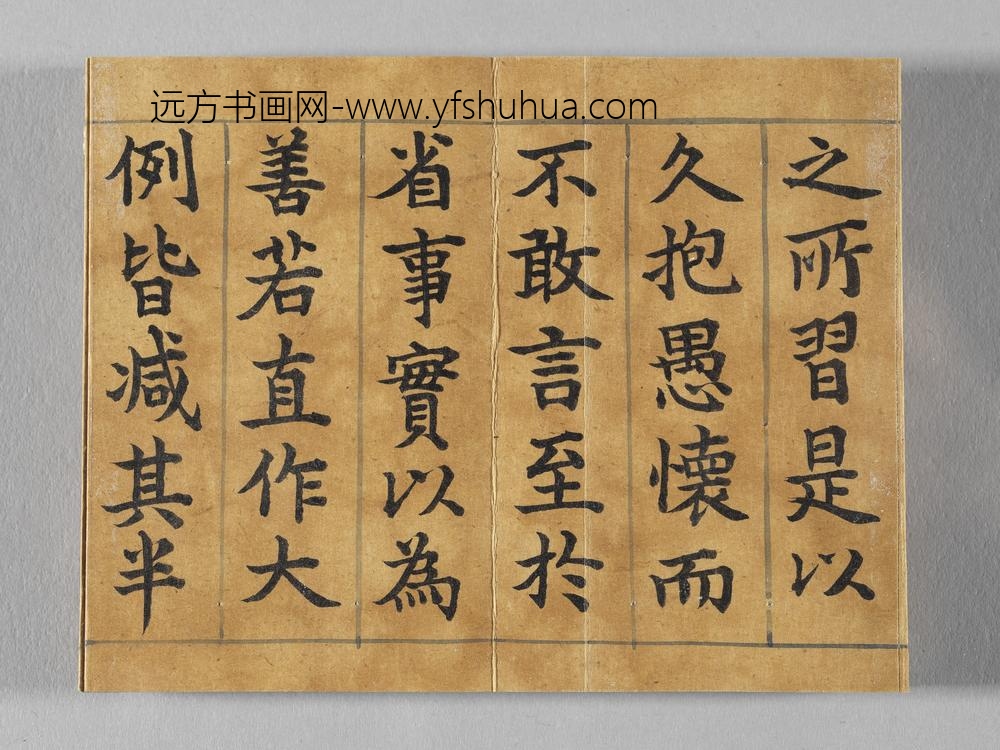 远方书画网-www.yfshuhua.com
之所習是以
久抱愚懷而
不敢言至於
省事實以為
善若直作大
例皆減其半